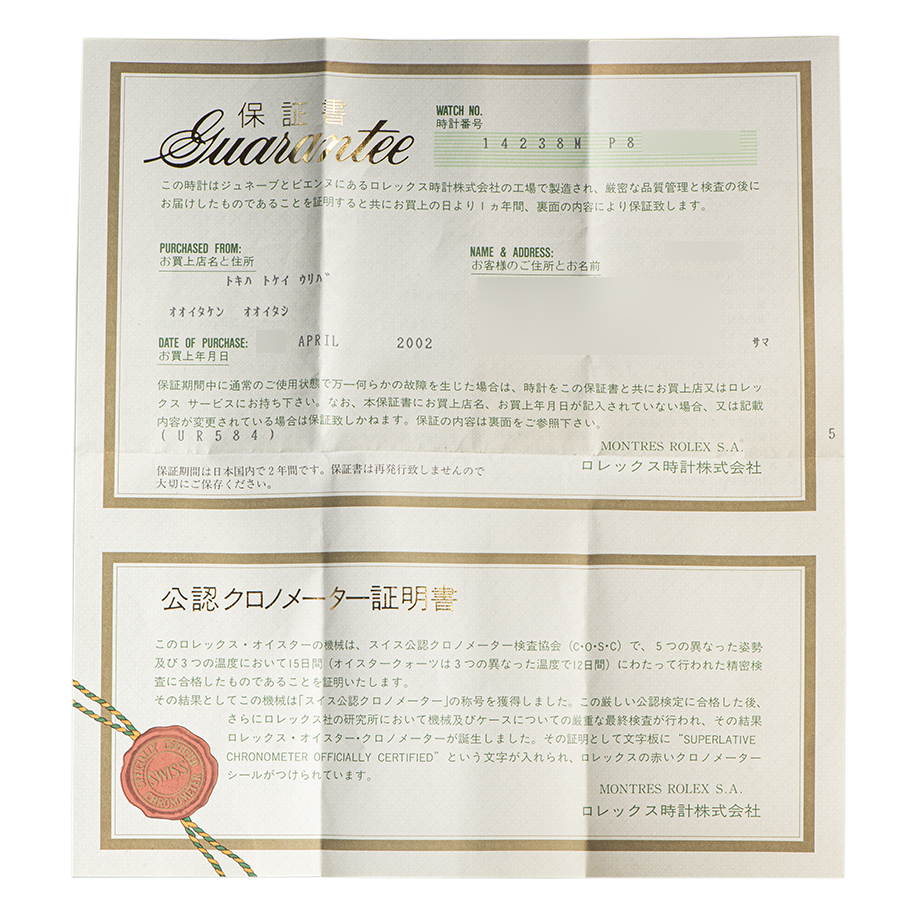 保証書
Guarantee
WATCH NO.
時計番号
14238M P8
この時計はジュネーブとビエンヌにあるロレックス時計株式会社の工場で製造され、厳密な品質管理と検査の後に
お届けしたものであることを証明すると共にお買上の日より1ヵ年間、裏面の内容により保証致します。
PURCHASED FROM:
お買上店名と住所
トキハ トケイ ウリバ
オオイタケン オオイタシ
NAME & ADDRESS:
お客様のご住所とお名前
サマ
DATE OF PURCHASE:
お買上年月日
APRIL 2002
保証期間中に通常のご使用状態で万一何らかの故障を生じた場合は、時計をこの保証書と共にお買上店又はロレッ
クス サービスにお持ち下さい。なお、本保証書にお買上店名、お買上年月日が記入されていない場合、又は記載
内容が変更されている場合は保証致しかねます。保証の内容は裏面をご参照下さい。
(UR584)
5
MONTRES ROLEX S.A.
ロレックス時計株式会社
保証期間は日本国内で2年間です。保証書は再発行致しませんので
大切にご保存ください。
公認クロノメーター証明書
このロレックス・オイスターの機械は、スイス公認クロノメーター検査協会(C・O・S・C)で、5つの異なった姿勢
及び3つの温度において15日間(オイスタークォーツは3つの異なった温度で12日間)にわたって行われた精密検
査に合格したものであることを証明いたします。
その結果としてこの機械は「スイス公認クロノメーター」の称号を獲得しました。この厳しい公認検定に合格した後、
さらにロレックス社の研究所において機械及びケースについての厳重な最終検査が行われ、その結果
ロレックス・オイスター・クロノメーターが誕生しました。その証明として文字板に "SUPERLATIVE
CHRONOMETER OFFICIALLY CERTIFIED" という文字が入れられ、ロレックスの赤いクロノメーター
シールがつけられています。
MONTRES ROLEX S.A.
ロレックス時計株式会社
OFFICIALLY CERTIFIED
SWISS
CHRONOMETER